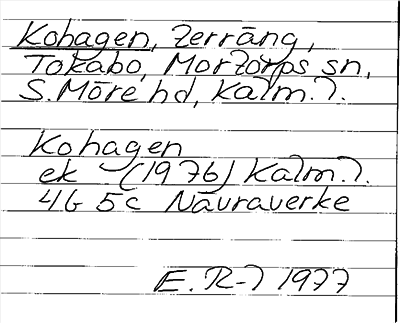 Kohagen, terräng,
Tokabo, Mortorps sn,
S. Möre hd, Kalm. l.
Kohagen
ek (1976) Kalm. l.
4G 5c Nävraverke
E. R-l 1977